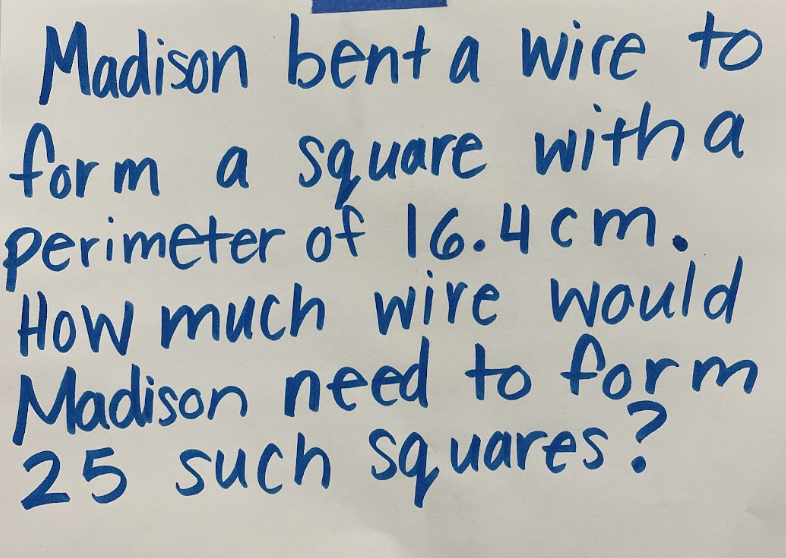 Madison bent a wire to
form a square with a
perimeter of 16.4 cm.
How much wire would
Madison need to form
25 such squares?